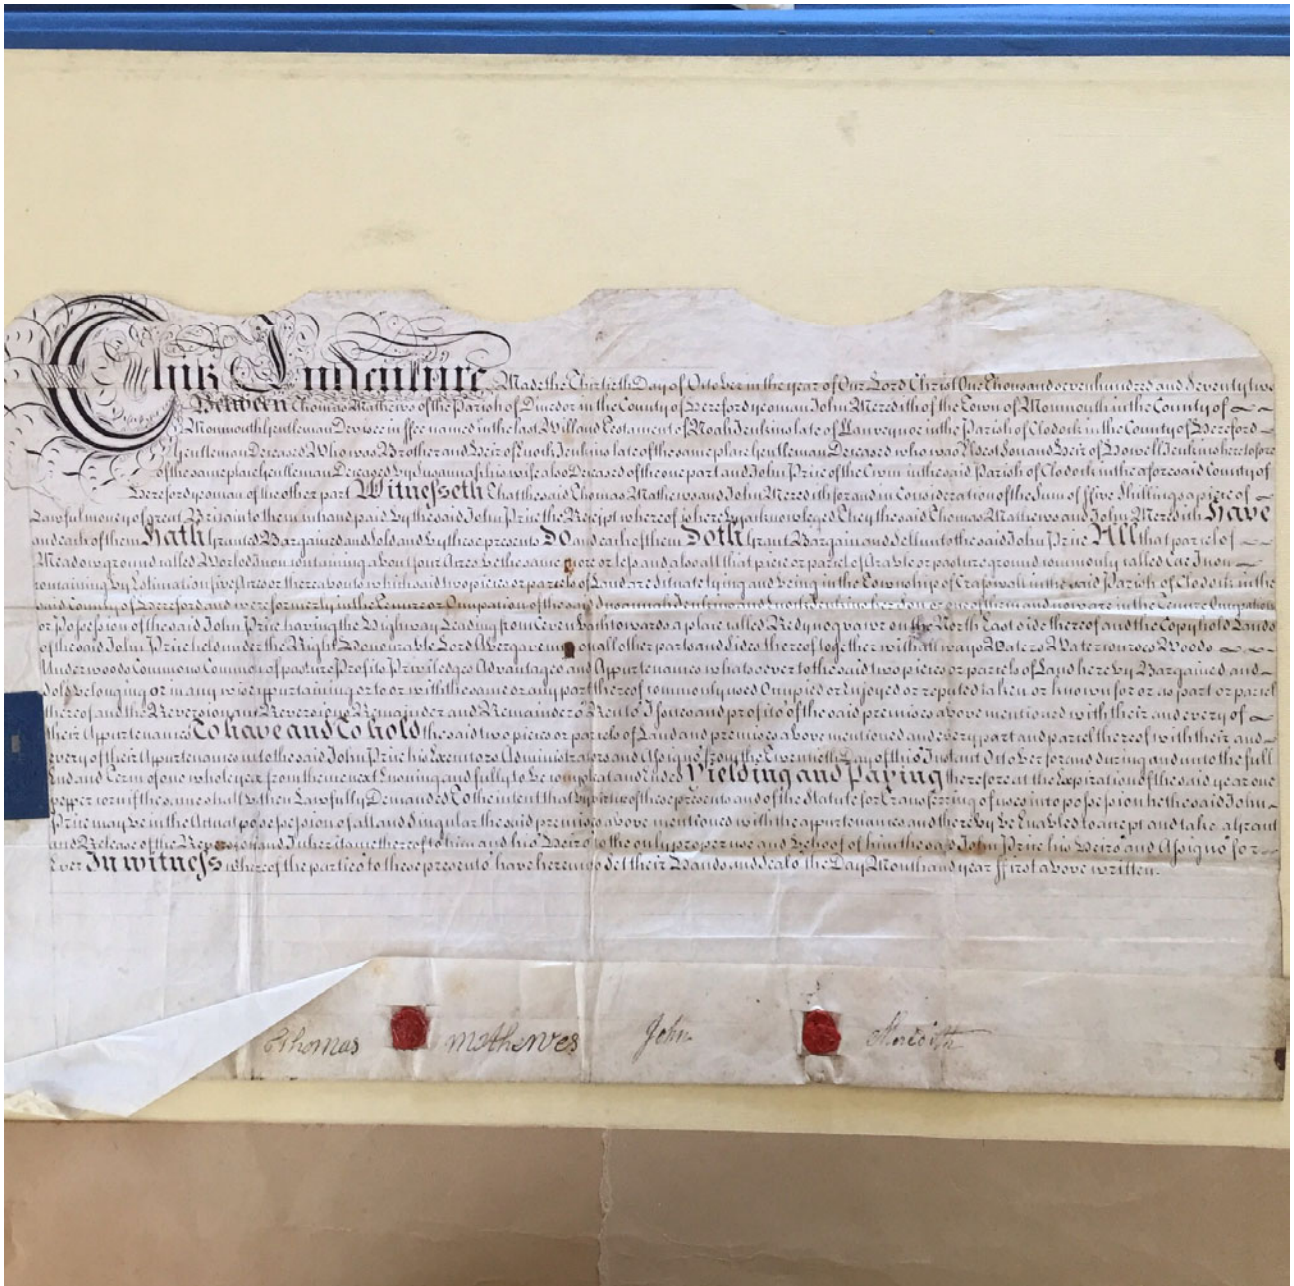 This Indenture Made the Thirtieth Day of October in the year of Our Lord Christ One Thousand seven hundred and Seventy two
Between Thomas Mathews of the Parish of Dinedor in the County of Hereford yeoman John Meredith of the Town of Monmouth in the County of
Monmouth Gentleman Devisee in ffee named in the last Will and Testament of Noah Jenkins late of Llanveynoe in the Parish of Clodock in the County of Hereford
Gentleman Deceased Who was Brother and Heir of Enoch Jenkins late of the same place Gentleman Deceased who was Eldest Son and Heir of Howell Jenkins heretofore
of the same place Gentleman Deceased by Susannah his wife also Deceased of the one part and John Price of the Cwm in the said Parish of Clodock in the aforesaid County of
Hereford yeoman of the other part Witnesseth That the said Thomas Mathews and John Meredith for and in Consideration of the Sum of ffive Shillings apiece of
Lawful money of Great Britain to them in hand paid by the said John Price the Receipt whereof is hereby acknowleged They the said Thomas Mathews and John Meredith Have
and each of them Hath Granted Bargained and Sold and by these presents Do and each of them Doth Grant Bargain and Sell unto the said John Price All that parcel of
Meadow ground called Worlod Inon containing about four Acres be the same more or less and also all that piece or parcel of Arable or pasture ground commonly called Cae Inon
containing by Estimation five Acres or thereabouts which said two pieces or parcels of Land are situate lying and being in the Township of Craswall in the said Parish of Clodock in the
said County of Hereford and were formerly in the Tenure or Occupation of the said Susannah Jenkins and Enoch Jenkins her Son or one of them and now are in the Tenure Occupation
or Possession of the said John Price having the Highway Leading from towards a place called on the North East side thereof and the Copyhold Lands
of the said John Price held under the Right Honourable Lord Abergavenny on all other parts and Sides thereof together with all ways Waters Watercourses Woods
Underwoods Commons Common of pasture Profits Priviledges Advantages and Appurtenances whatsoever to the said two pieces or parcels of Land hereby Bargained and
Sold belonging or in any wise appurtaining or to or with the same or any part thereof commonly used Occupied or Enjoyed or reputed taken or known for or as part or parcel
thereof and the Reversion and Reversions Remainder and Remainders Rents Issues and profits of the said premises above mentioned with their and every of
their Appurtenances To have and To hold the said two pieces or parcels of Land and premises above mentioned and every part and parcel thereof with their and
every of their Appurtenances unto the said John Price his Executors Administrators and Assigns from the Twentieth Day of this Instant October for and during and unto the full
End and Term of one whole year from thence next Ensuing and fully to be compleat and ended Yielding and Paying therefore at the Expiration of the said year one
pepper corn if the same shall be then Lawfully Demanded To the intent that by virtue of these presents and of the Statute for Transferring of uses into possession he the said John
Price may be in the Actual possession of all and Singular the said premises above mentioned with the appurtenances and thereby be Enabled to accept and take a Grant
and Release of the Reversion and Inheritance thereof to him and his Heirs to the only proper use and behoof of him the said John Price his Heirs and Assigns for
Ever In witness whereof the parties to these presents have hereunto Set their Hands and Seals the Day Month and year ffirst above written.
Thomas mathewes John Meredith